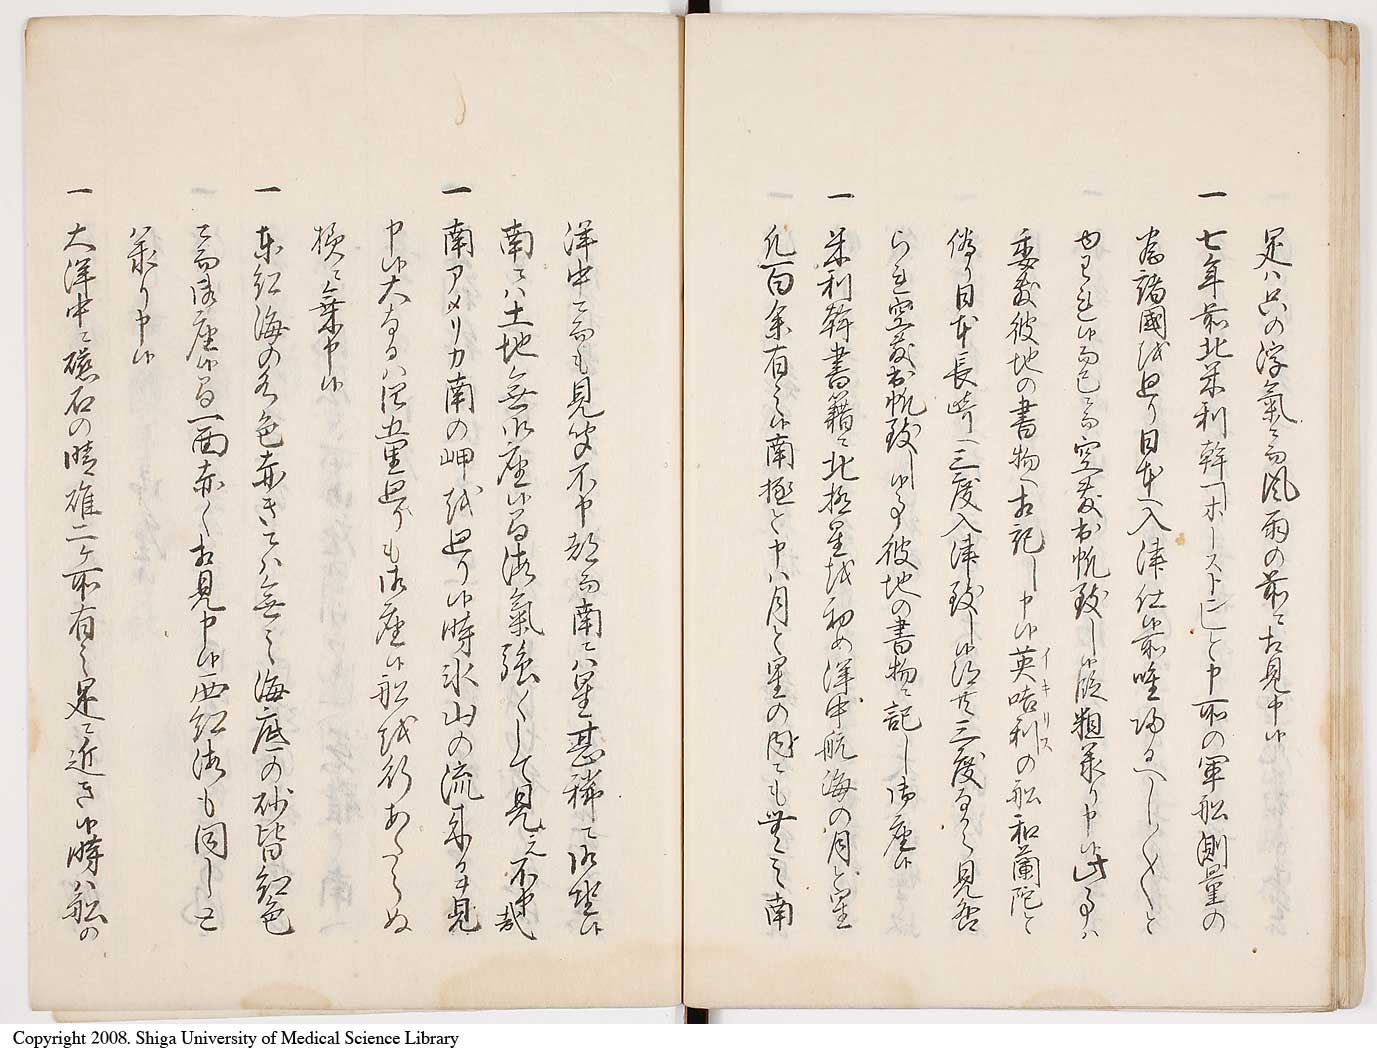 是ハ只の浮氣ニ而風雨の前ニ相見申候
一 七年前北米利幹「ボーストン」と申所の軍船測量の
為諸國を廻り日本入津仕候前唯帰るへし〳〵と
被申候而已ニ而空敷出帆致し候段粗承り申候此事ハ
委敷彼地の書物へ相記し申候英咭利の船和蘭陀と
イキリス
偽り日本長崎へ三度入津致し候得共三度なから見咎
られ空敷出帆致し候事彼地の書物ニ記し御座候
一 米利幹書籍ニ北極星を初め洋中航海の月と星
凡百余有之候南極と申ハ月と星の内ニも無之南
洋中ニ而も見受不申都而南ニハ星甚稀ニ御坐候
南ニハ土地無御座候間海氣強くして見え不申哉
一 南アメリカ南の岬を廻り候時氷山の流来るを見
申候大なるハ四五里廻りも御座候船を行あたらぬ
様ニ乗申候
一 東紅海の名色赤きニハ無之海底の砂皆紅色
ニ而御座候間一面赤く相見申候西紅海も同しと
承り申候
一 大洋中ニ磁石の晴雄二ヶ所有之是ニ近き候時ハ船の
Copyright 2008. Shiga University of Medical Science Library